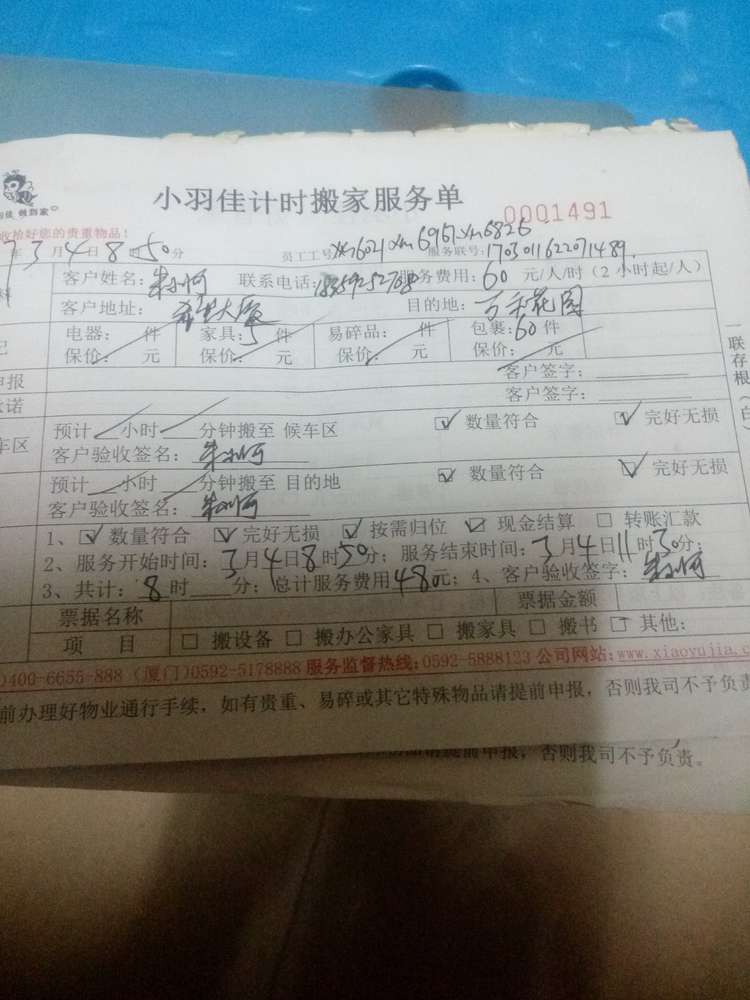 小羽佳计时搬家服务单
0001491
收拾好您的贵重物品!
年 3月4日8时50分 员工工号: xm6967xm6826 服务联号: 1703011622071489
客户姓名: 联系电话: 服务费用:60元/人/时(2小时起/人)
客户地址: 大厦 目的地: 花园
电器: 件 家具:5件 易碎品: 件 包裹:60件
保价: 元 保价: 元 保价: 元 保价: 元
申报 客户签字:
承诺 客户签字:
一联存根(白
车区 预计 小时 分钟搬至 候车区 ☑数量符合 ☑完好无损
客户验收签名:
预计 小时 分钟搬至 目的地 ☑数量符合 ☑完好无损
客户验收签名:
1、☑数量符合 ☑完好无损 ☑按需归位 ☑现金结算 □转账汇款
2、服务开始时间:3月4日8时50分; 服务结束时间:3月4日11时30分;
3、共计:8时 分; 总计服务费用480元; 4、客户验收签字:
票据名称 票据金额
项 目 □搬设备 □搬办公家具 □搬家具 □搬书 □其他:
)400-6655-888 (厦门)0592-5178888 服务监督热线:0592-5888123 公司网站:www.xiaoyujia.c
前办理好物业通行手续,如有贵重、易碎或其它特殊物品请提前申报,否则我司不予负责
前申报,否则我司不予负责。